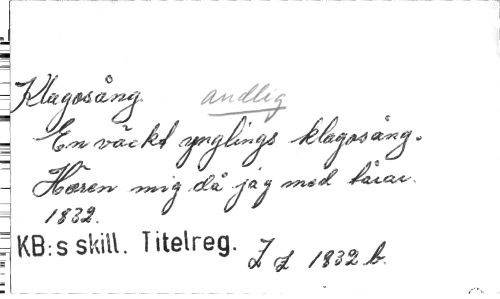 Klagosång. andlig
En väckt ynglings klagosång.
Hören mig då jag med tårar.
1832.
KB:s skill. Titelreg. Z z 1832 b.